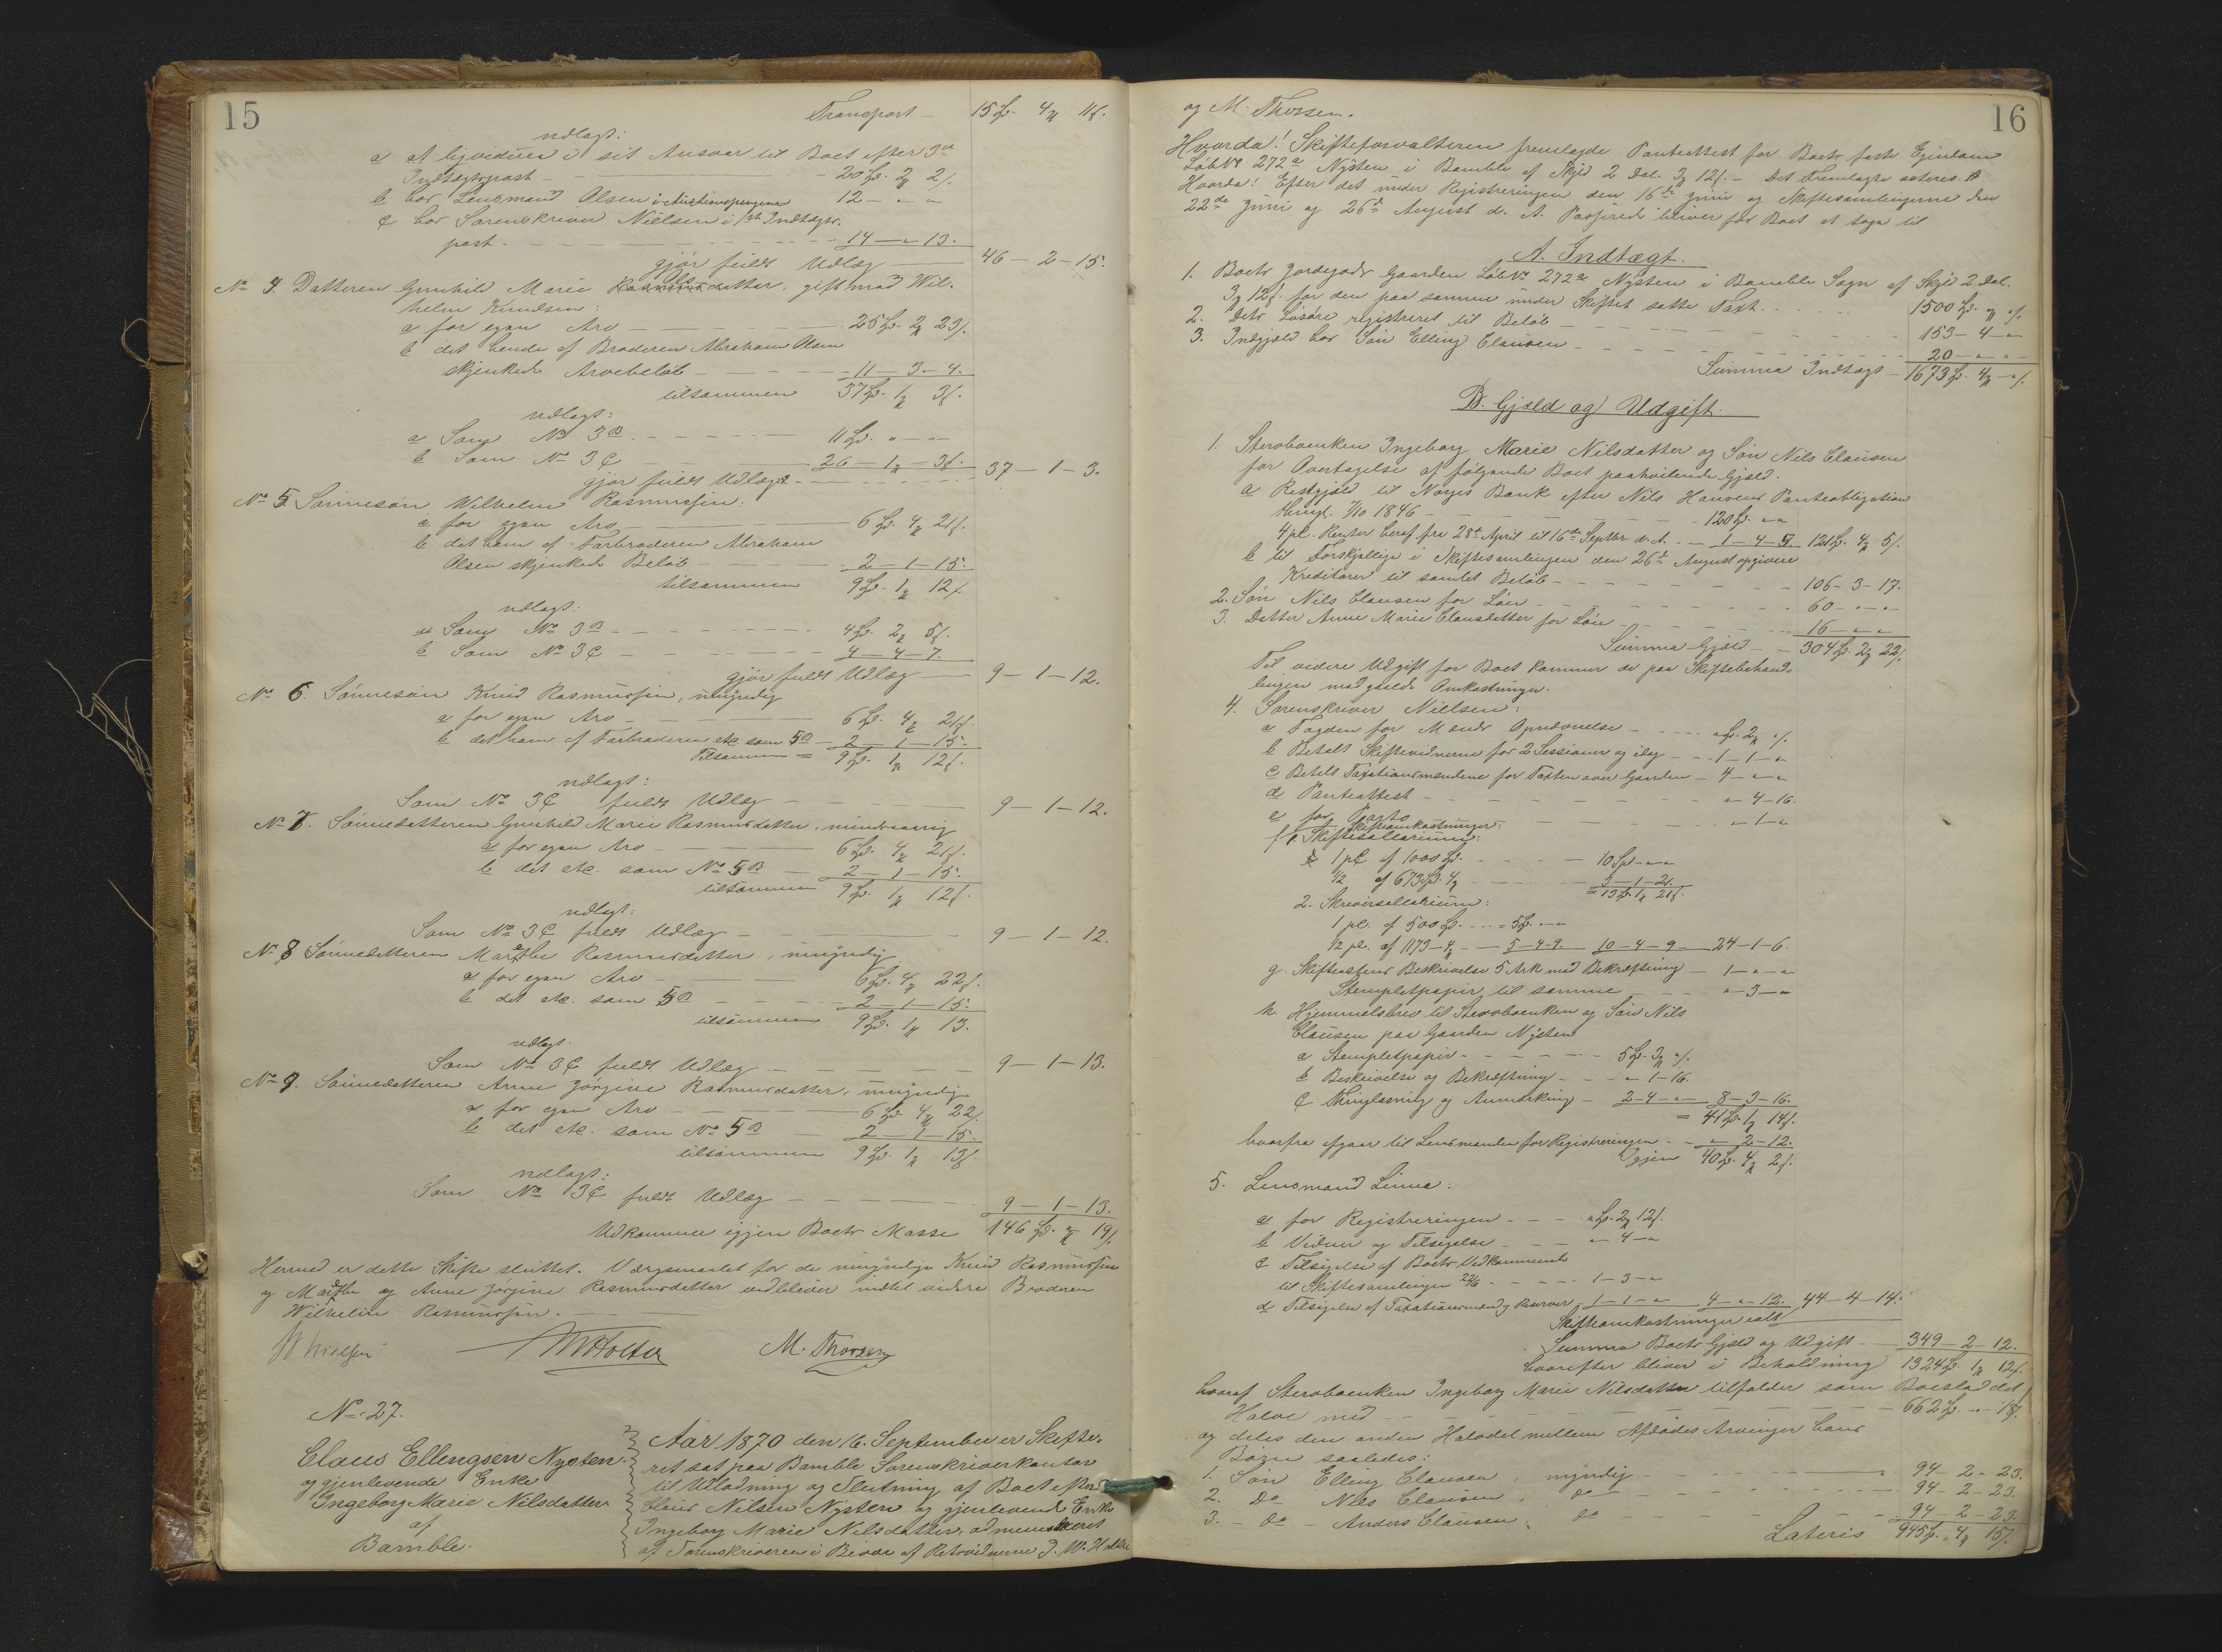 15
Transport – 15 Sp. 4 ℔ 11 ſ.
udlagt:
a at liqvidere i sit Ansvar til Boet efter 3die
Indtægtspost – 20 Sp. 2 ℔ 2 ſ.
b hos Lensmand Olsen i Auctionspengene 12 – " – "
c hos Sorenskriver Nielsen i 1ste Indtægts-
post – 14 – " – 13.
gjør fuldt Udlæg – 46 – 2 – 15.
No 4. Datteren Gunhild Marie Olsdatter, gift med Wil-
helm Knudsen:
a for egen Arv – 25 Sp. 2 ℔ 23 ſ.
b det hende af Broderen Abraham Olsen
skjenkede Arvebeløb – 11 – 3 – 4.
tilsammen 37 Sp. 1 ℔ 3 ſ.
udlagt:
a Som No 3 B – 11 Sp. " – "
b Som No 3 C – 26 – 1 ℔ – 3 ſ.
gjør fuldt Udlæg – 37 – 1 – 3.
No 5 Sønnesøn Wilhelm Rasmussen:
a for egen Arv – 6 Sp. 4 ℔ 21 ſ.
b det ham af Farbroderen Abraham
Olsen skjenkede Beløb – 2 – 1 – 15.
tilsammen 9 Sp. 1 ℔ 12 ſ.
udlagt:
a Som No 3 B – 4 Sp. 2 ℔ 5 ſ.
b Som No 3 C – 4 – 4 – 7.
gjør fuldt Udlæg – 9 – 1 – 12.
No 6. Sønnesøn Knud Rasmussen, umyndig
a for egen Arv – 6 Sp. 4 ℔ 21 ſ.
b det ham af Farbroderen etc. som 5 B – 2 – 1 – 15.
Tilsammen = 9 Sp. 1 ℔ 12 ſ.
udlagt:
Som No 3 C fuldt Udlæg – 9 – 1 – 12.
No 7. Sønnedatteren Gunhild Marie Rasmusdatter, mindreaarig
a for egen Arv – 6 Sp. 4 ℔ 21 ſ.
b det etc. som No 5 B – 2 – 1 – 15.
tilsammen 9 Sp. 1 ℔ 12 ſ.
udlagt:
Som No 3 C fuldt Udlæg – 9 – 1 – 12.
No 8 Sønnedatteren Marthe Rasmusdatter, umyndig
a for egen Arv – 6 Sp. 4 ℔ 22 ſ.
b det etc. som 5 B – 2 – 1 – 15.
tilsammen 9 Sp. 1 ℔ 13.
udlagt.
Som No 3 C fuldt Udlæg – 9 – 1 – 13.
No 9. Sønnedatteren Anne Jørgine Rasmusdatter, umyndig
a for egen Arv – 6 Sp. 4 ℔ 22 ſ.
b det etc. som No 5 B – 2 – 1 – 15.
tilsammen 9 Sp. 1 ℔ 13 ſ.
udlagt:
Som No 3 C fuldt Udlæg – 9 – 1 – 13.
Udkommer igjen Boets Masse 146 Sp. " ℔ 19 ſ.
Hermed er dette Skifte sluttet. Værgemaalet for de umyndige Knud Rasmussen
og Marthe og Anne Jørgine Rasmusdatter vedbliver indtil videre Broderen
Wilhelm Rasmussen.
Nielsen M Holter M. Thorsen
No 27.
Claus Ellengsen Nysten
og gjenlevende Enke
Ingeborg Marie Nilsdatter
af
Bamble.
Aar 1870 den 16. September er Skifte-
ret sat paa Bamble Sorenskriverkontor
til Udlodning og Slutning af Boet efter
Claus Nilsen Nysten og gjenlevende Enke
Ingeborg Marie Nilsdatter, administreret
af Sorenskriveren i Bivær af Retsvidnerne J. W. Holter
16
og M. Thorsen.
Hvorda! Skifteforvalteren fremlagde Panteattest for Boets faste Eiendom
Løb No 272a Nysten i Bamble af Skyld 2 Dal. 3 ℔ 12 ſ. – Det Fremlagte acteres.
Hvorda! Efter det under Registreringen den 16de Juni og Skiftesamlingerne den
22de Juni og 26de August d. A. Passerede bliver for Boet at tage til
A. Indtægt.
1. Boets Jordegods Gaarden Løb No 272a Nysten i Bamble Sogn af Skyld 2 Dal.
3 ℔ 12 ſ. for den paa samme under Skiftet satte Taxt – 1500 Sp. " ℔ " ſ.
2. Dets Løsøre registreret til Beløb – 153 – 4 – "
3. Indgjæld hos Søn Elling Clausen – 20 – " – "
Summa Indtægt – 1673 Sp. 4 ℔ – " ſ.
B. Gjæld og Udgift.
1. Stervboenken Ingeborg Marie Nilsdatter og Søn Nils Clausen
for Overtagelse af følgende Boet paahvilende Gjæld.
a Restgjæld til Norges Bank efter Nils Hansens Panteobligation
thingl. 7/10 1846 – 120 Sp. " "
4 pC. Renter heraf fra 28de April til 16de Septbr. d. A. – 1 – 4 – 5. 121 Sp. 4 ℔ 5 ſ.
b til Forskjellige i Skiftesamlingen den 26de August opgivne
Kreditorer til samlet Beløb – 106 – 3 – 17.
2. Søn Nils Clausen for Løn – 60 – " – "
3. Datter Anne Marie Clausdatter for Løn – 16 – " "
Summa Gjæld – 304 Sp. 2 ℔ 22 ſ.
Til videre Udgift for Boet kommer de paa Skiftebehand-
lingen medgaaede Omkostninger.
4. Sorenskriver Nielsen:
a Fogden for Mænds Opnævnelse – " Sp. 2 ℔ " ſ.
b Betalt Skiftevidnerne for 2 Sessioner og idag – 1 – 1 – "
c Betalt Taxationsmændene for Taxten over Gaarden – 4 – " – "
d Panteattest – " – 4 – 16.
e for Porto – " – 1 – "
f Skifteomkostninger:
1. Skiftesallarium:
1 pC af 1000 Sp. – 10 Sp – " "
1/2 af 673 Sp. 4 ℔ – 3 – 1 – 21.
= 13 Sp. 1 ℔ 21 ſ.
2. Skriversallarium:
1 pC. af 500 Sp. – = 5 Sp. – "
1/2 pC. af 1173 – 4 ℔ – 5 – 4 – 9. 10 – 4 – 9 – 24 – 1 – 6.
g. Skifteaktens Beskrivelse 5 Ark med Bekræftning – 1 – " – "
Stempletpapir til samme – " – 3 – "
h. Hjemmelsbrev til Stervboenken og Søn Nils
Clausen paa Gaarden Nysten
a Stempletpapir – 5 Sp. 3 ℔ " ſ.
b Beskrivelse og Bekræftning – " – 1 – 16.
c Thinglæsning og Anmærkning – 2 – 4 – " 8 – 3 – 16.
= 41 Sp. 1 ℔ 14 ſ.
hvorfra afgaar til Lensmanden for Registreringen – " – 2 – 12.
Igjen 40 Sp. 4 ℔ 2 ſ.
5. Lensmand Linna:
a for Registreringen – " Sp. 2 ℔ 12 ſ.
b Vidner og Tilsigelse – " – 4 – "
c Tilsigelse af Boets Vedkommende
til Skiftesamlingen 22/6 – 1 – 3 – "
d Tilsigelse af Taxationsmænd og Kurver 1 – 1 – " 4 – " – 12. 44 – 4 – 14.
Skifteomkostninger ialt
Summa Boets Gjæld og Udgift – 349 – 2 – 12.
hvorefter bliver i Beholdning 1324 Sp. 1 ℔ 12 ſ.
hvoraf Stervboenken Ingeborg Marie Nilsdatter tilfalder som Boeslod det
Halve med – 662 Sp. " – 18 ſ.
og deles den anden Halvdel mellem Afdødes Arvinger hans
Børn saaledes:
1. Søn Elling Clausen, myndig – 94 – 2 – 23.
2. Do Nils Clausen, do – 94 – 2 – 23.
3. – Do – Anders Clausen, do – 94 – 2 – 23.
Lateris 945 Sp. 4 ℔ 15 ſ.